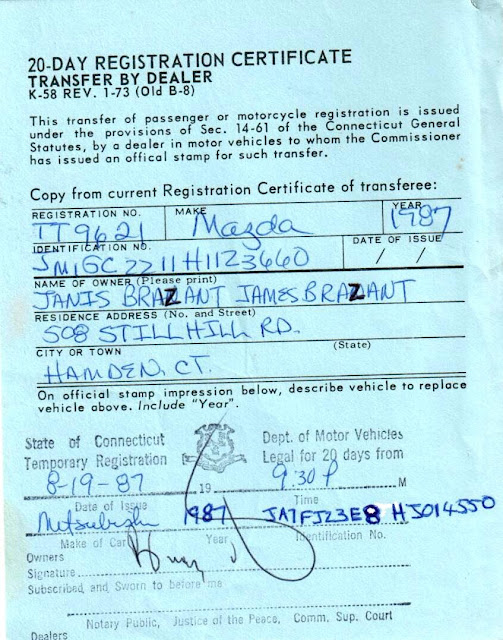 20-DAY REGISTRATION CERTIFICATE
TRANSFER BY DEALER
K-58 REV. 1-73 (Old B-8)
This transfer of passenger or motorcycle registration is issued
under the provisions of Sec. 14-61 of the Connecticut General
Statutes, by a dealer in motor vehicles to whom the Commissioner
has issued an offical stamp for such transfer.
Copy from current Registration Certificate of transferee:
REGISTRATION NO. MAKE YEAR
TT9621 Mazda 1987
IDENTIFICATION NO. DATE OF ISSUE
JM1GC2211H1123660 / /
NAME OF OWNER (Please print)
JANIS BRAZANT JAMES BRAZANT
RESIDENCE ADDRESS (No. and Street)
508 STILL HILL RD.
CITY OR TOWN (State)
HAMDEN, CT.
On official stamp impression below, describe vehicle to replace
vehicle above. Include "Year".
State of Connecticut Dept. of Motor Vehicles
Temporary Registration Legal for 20 days from
8-19-87 19 9:30 P M
Date of Issue Time
Mitsubishi 1987 JA7FJ23E8HJ014550
Make of Car Year Identification No.
Owners
Signature
Subscribed and Sworn to before me
Notary Public, Justice of the Peace, Comm. Sup. Court
Dealers